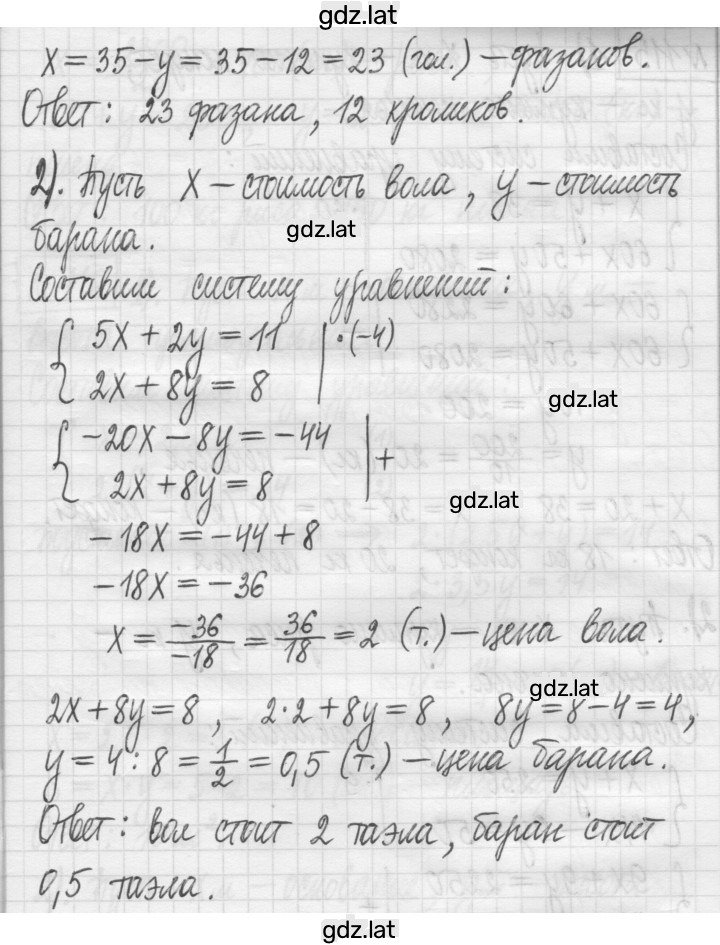 gdz.lat
x = 35 − y = 35 − 12 = 23 (гол.) − фазанов.
Ответ: 23 фазана, 12 кроликов.
2). Пусть x − стоимость вола, y − стоимость
барана.
gdz.lat
Составим систему уравнений:
{ 5x + 2y = 11 | · (−4)
{ 2x + 8y = 8
gdz.lat
{ −20x − 8y = −44 | +
{ 2x + 8y = 8
gdz.lat
−18x = −44 + 8
−18x = −36
x = −36/−18 = 36/18 = 2 (т.) − цена вола.
gdz.lat
2x + 8y = 8, 2·2 + 8y = 8, 8y = 8 − 4 = 4,
y = 4 : 8 = 1/2 = 0,5 (т.) − цена барана.
Ответ: вол стоит 2 таэла, баран стоит
0,5 таэла.
gdz.lat